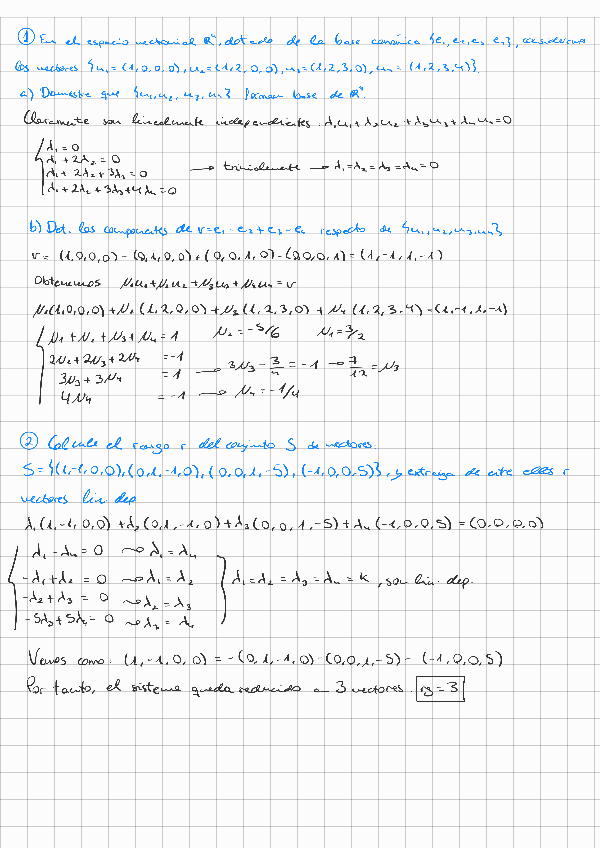 ① En el espacio vectorial R⁴, dotado de la base canónica {e₁, e₂, e₃, e₄}, consideramos
los vectores {u₁ = (1,0,0,0), u₂ = (1,2,0,0), u₃ = (1,2,3,0), u₄ = (1,2,3,4)}.
a) Demuestra que {u₁, u₂, u₃, u₄} forman base de R⁴.
Claramente son linealmente independientes. λ₁u₁ + λ₂u₂ + λ₃u₃ + λ₄u₄ = 0
λ₁ = 0
λ₁ + 2λ₂ = 0
λ₁ + 2λ₂ + 3λ₃ = 0 → trivialmente → λ₁ = λ₂ = λ₃ = λ₄ = 0
λ₁ + 2λ₂ + 3λ₃ + 4λ₄ = 0
b) Det. las componentes de v = e₁ - e₂ + e₃ - e₄ respecto de {u₁, u₂, u₃, u₄}
v = (1,0,0,0) - (0,1,0,0) + (0,0,1,0) - (0,0,0,1) = (1,-1,1,-1)
Obtenemos μ₁u₁ + μ₂u₂ + μ₃u₃ + μ₄u₄ = v
μ₁(1,0,0,0) + μ₂(1,2,0,0) + μ₃(1,2,3,0) + μ₄(1,2,3,4) = (1,-1,1,-1)
μ₁ + μ₂ + μ₃ + μ₄ = 1 μ₂ = -5/6 μ₁ = 3/2
2μ₂ + 2μ₃ + 2μ₄ = -1
3μ₃ + 3μ₄ = 1 → 3μ₃ - 3/4 = -1 → 7/12 = μ₃
4μ₄ = -1 → μ₄ = -1/4
② Calcule el rango r del conjunto S de vectores.
S = {(1,-1,0,0), (0,1,-1,0), (0,0,1,-5), (-1,0,0,5)}, y extraiga de este r
vectores lin. dep
λ₁(1,-1,0,0) + λ₂(0,1,-1,0) + λ₃(0,0,1,-5) + λ₄(-1,0,0,5) = (0,0,0,0)
λ₁ - λ₄ = 0 → λ₁ = λ₄
-λ₁ + λ₂ = 0 → λ₁ = λ₂ λ₁ = λ₂ = λ₃ = λ₄ = k, son lin. dep.
-λ₂ + λ₃ = 0 → λ₂ = λ₃
-5λ₃ + 5λ₄ = 0 → λ₃ = λ₄
Vemos como: (1,-1,0,0) = -(0,1,-1,0) - (0,0,1,-5) - (-1,0,0,5)
Por tanto, el sistema queda reducido a 3 vectores. rg = 3